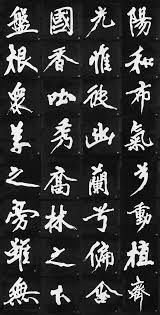 陽和布氣兮動植齊
光惟彼幽蘭兮偏含
國香吐秀喬林之下
盤根眾草之旁雖無